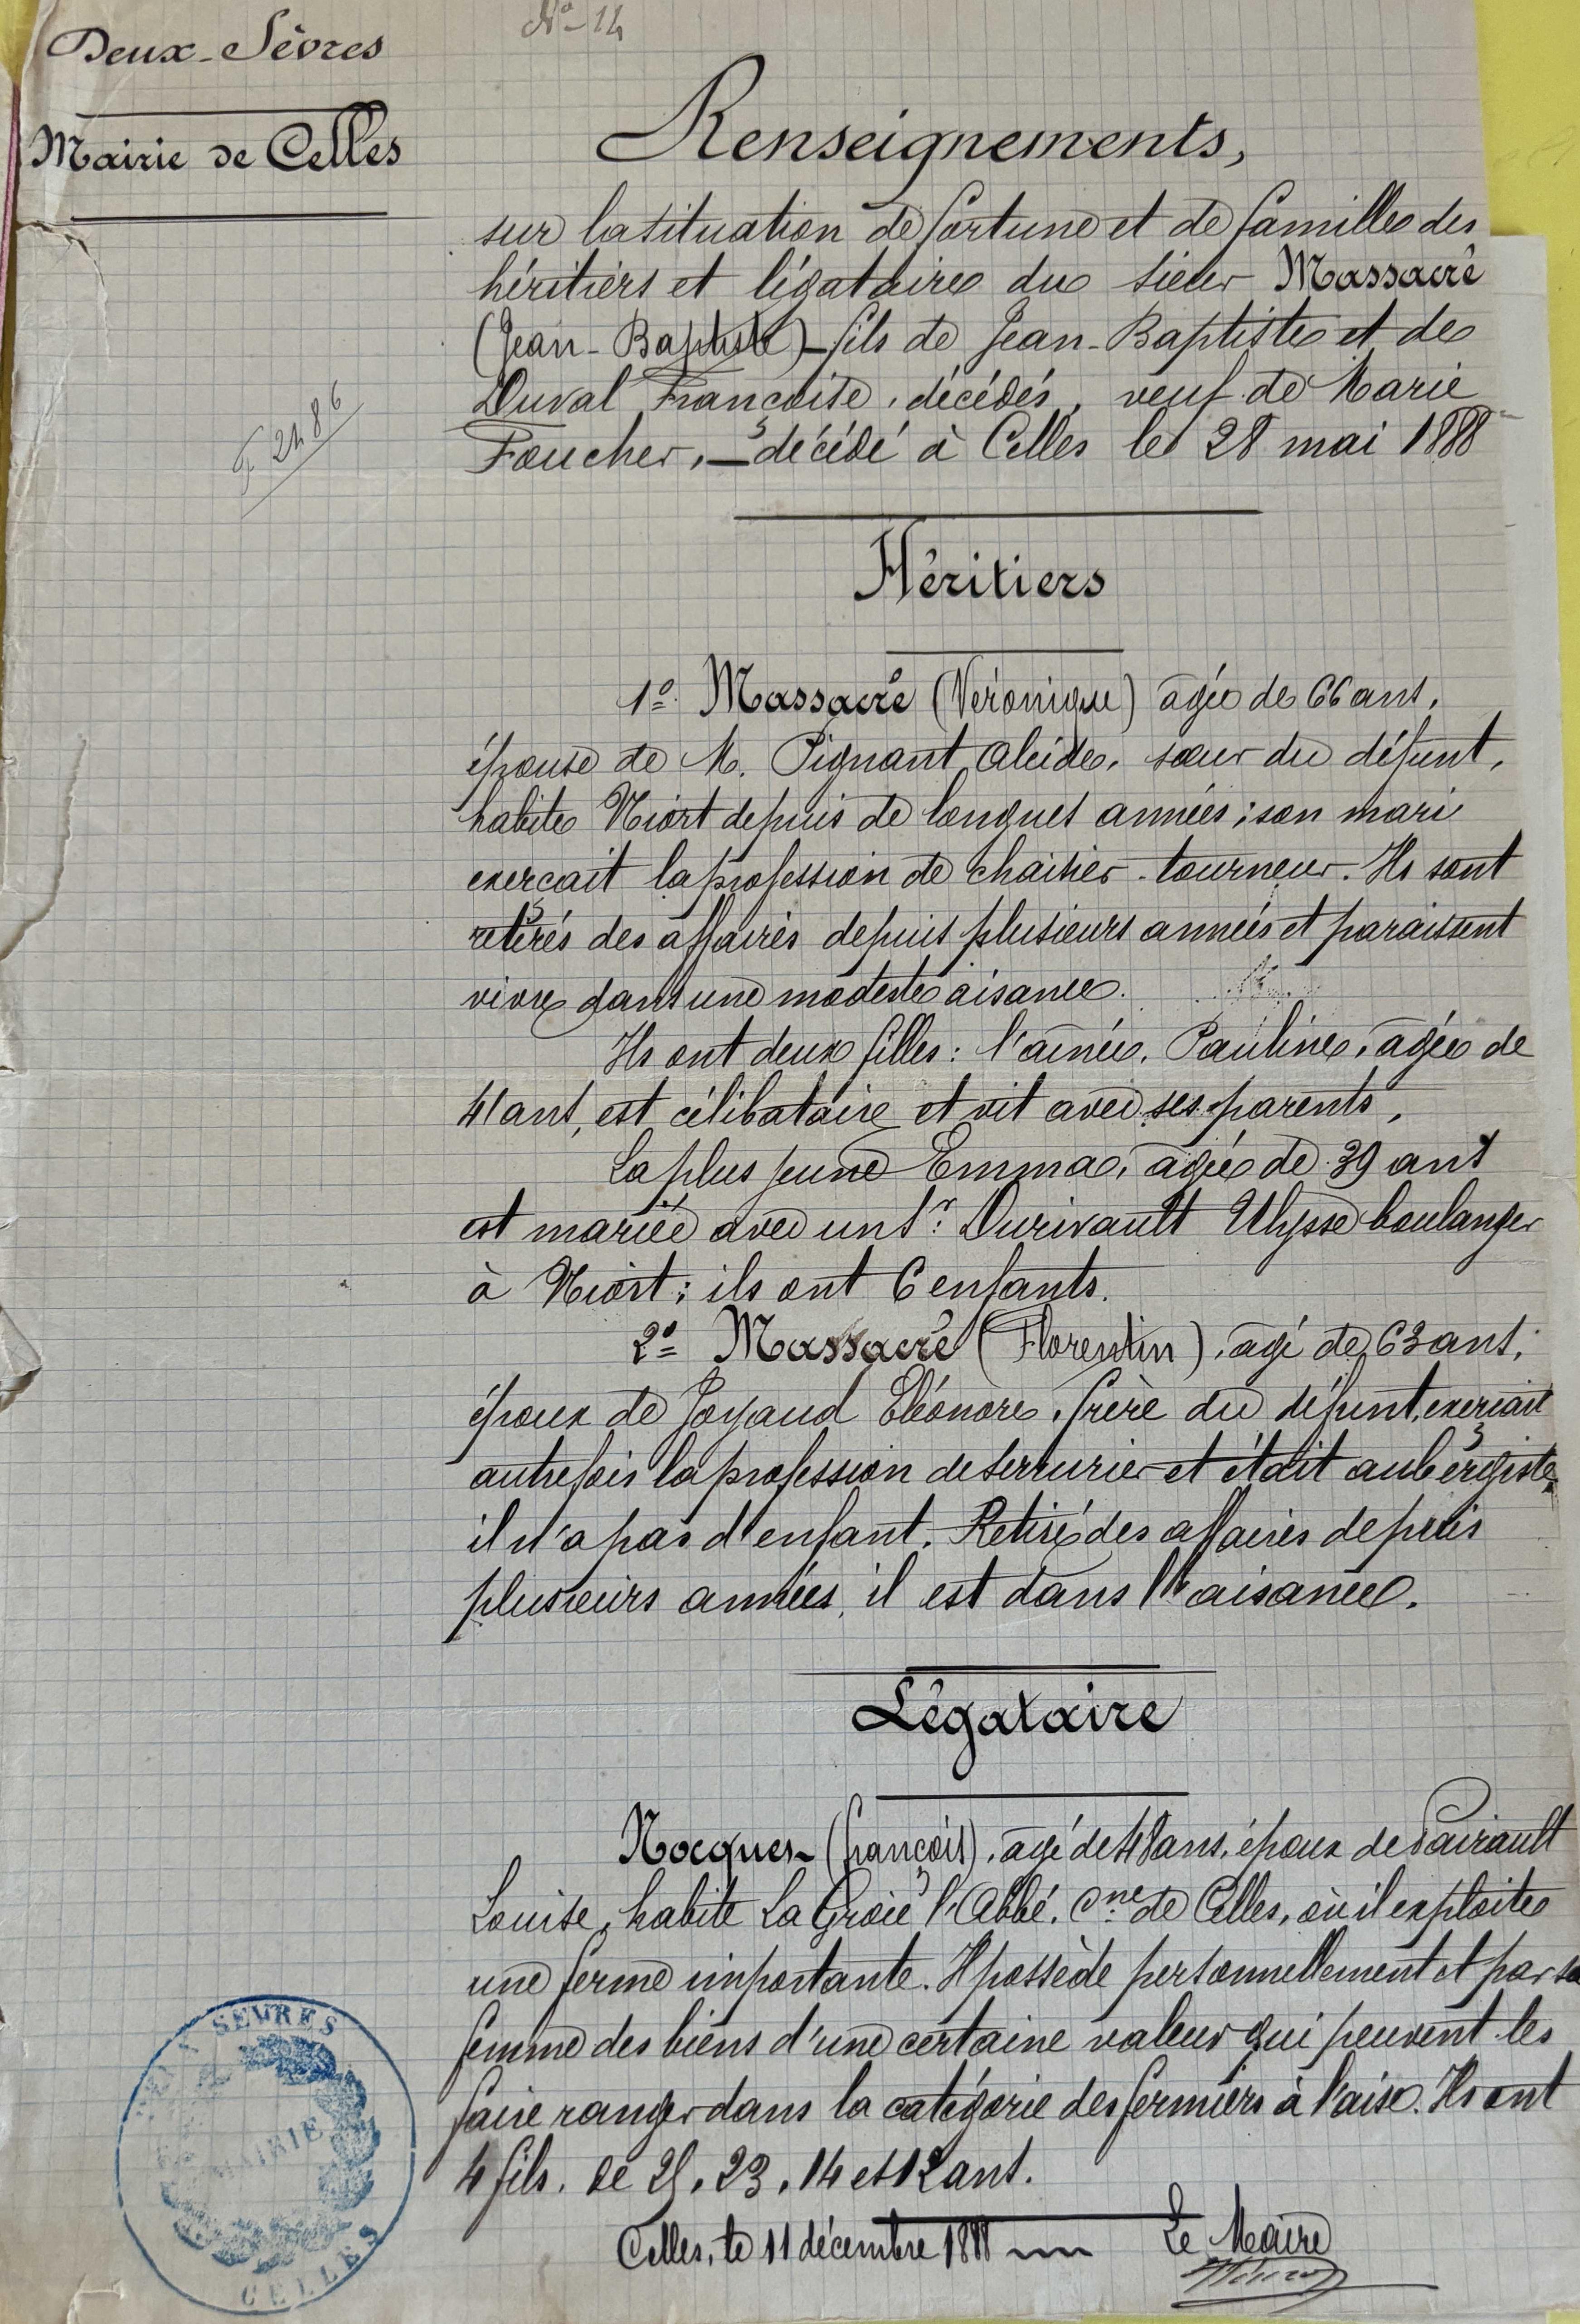 Deux-Sèvres
N° 14
Mairie de Celles
Renseignements,
sur la situation de fortune et de famille des
héritiers et légataire du sieur Massacré
(Jean-Baptiste) - fils de Jean-Baptiste et de
Duval Françoise, décédés, veuf de Marie
F 2486
Foucher, - décédé à Celles le 28 mai 1888
Héritiers
1° Massacré (Véronique) agée de 66 ans,
épouse de M. Pignant Alcide, sœur du défunt,
habite Niort depuis de longues années ; son mari
exerçait la profession de chaisier-tourneur. Ils sont
retirés des affaires depuis plusieurs années et paraissent
vivre dans une modeste aisance.
Ils ont deux filles : l'aînée, Pauline, agée de
41 ans, est célibataire et vit avec ses parents,
La plus jeune Emma, agée de 39 ans
est mariée avec un Sr. Durivault Ulysse boulanger
à Niort ; ils ont 6 enfants.
2° Massacré (Florentin), agé de 63 ans,
époux de Joyaud Eléonore, frère du défunt, exerçait
autrefois la profession de serrurier et était aubergiste,
il n'a pas d'enfant. Retiré des affaires depuis
plusieurs années, il est dans l'aisance.
Légataire
Nocquer (françois), agé de 48 ans, époux de Pairault
Louise, habite La Groie l'Abbé, Cne de Celles, où il exploite
une ferme importante. Il possède personnellement et par sa
femme des biens d'une certaine valeur qui peuvent les
faire ranger dans la catégorie des fermiers à l'aise. Ils ont
4 fils, de 25, 23, 14 et 12 ans.
Celles, le 11 décembre 1888
Le Maire
DEUX SEVRES
MAIRIE
CELLES